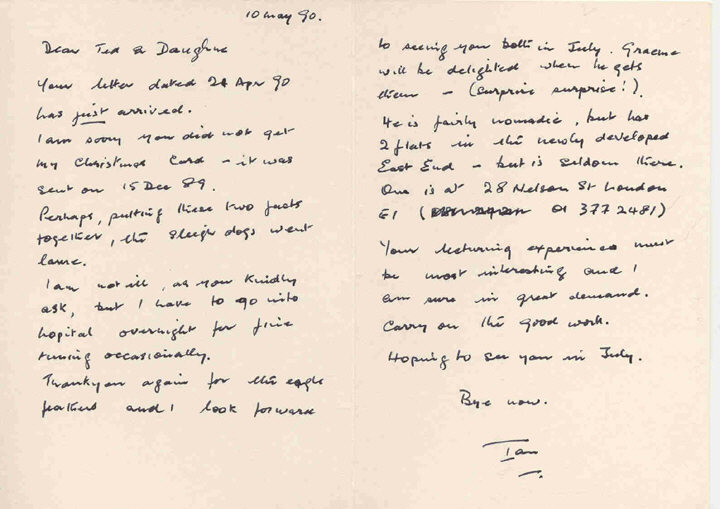 10 May 90.
Dear Ted & Daughne
Your letter dated 24 Apr 90
has just arrived.
I am sorry you did not get
my Christmas Card – it was
sent on 15 Dec 89.
Perhaps, putting these two facts
together, the sleigh dogs went
lame.
I am not ill, as you kindly
ask, but I have to go into
hopital overnight for fine
tuning occasionally.
Thankyou again for the eagle
feathers and I look forward
to seeing you both in July. Graeme
will be delighted when he gets
them – (surprise surprise!).
He is fairly nomadic, but has
2 flats in the newly developed
East End – but is seldom there.
One is at 28 Nelson St London
E1 ( 01 377 2481)
Your lecturing experiences must
be most interesting and I
am sure in great demand.
Carry on the good work.
Hoping to see you in July.
Bye now.
Ian